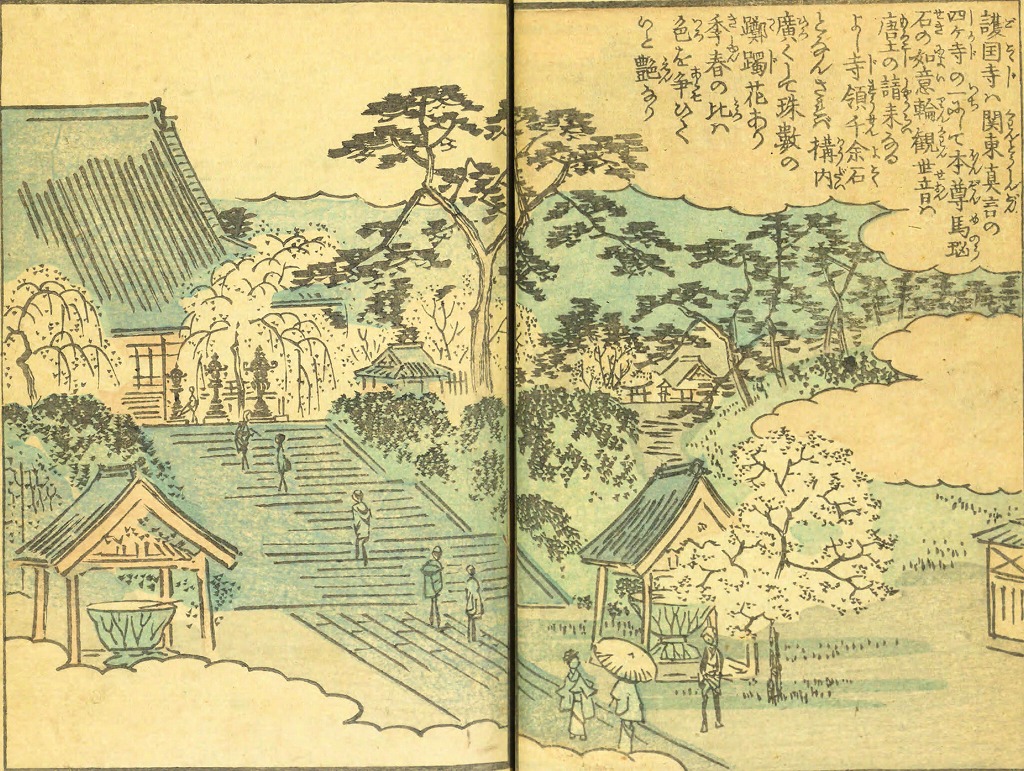 護囯寺ハ関東真言の
四ケ寺の一にして本尊馬瑙
石の如意輪観世音ハ
唐土の請来なる
よし寺領千余石
となんされバ構内
廣くして珠数の
躑躅花あり
季春の比ハ
色を争ひて
いと艶なり